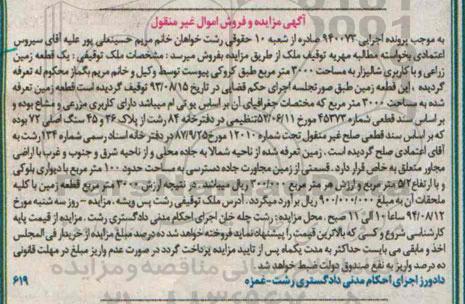 آگهی مزایده و فروش اموال غیر منقول
به موجب پرونده اجرایی ۹۴۰۰۷۳ صادره از شعبه ۱۰ حقوقی رشت خواهان خانم مریم حسینعلی پور علیه آقای سیروس
اعتمادی بخواسته مطالبه مهریه توقیف ملک از طریق مزایده بفروش میرسد: مشخصات ملک توقیفی: یک قطعه زمین
زراعی و با کاربری شالیزار به مساحت ۳۰۰۰ متر مربع طبق کروکی پیوست توسط وکیل و خانم مریم بگماز محکوم له تعرفه
گردیده، این قطعه زمین طبق صورتجلسه اجرای حکم قضایی در تاریخ ۹۳/۰۸/۱۵ توقیف گردیده است قطعه زمین تعرفه
شده به مساحت ۳۰۰۰ متر مربع که مختصات جغرافیای آن بر اساس یو تی ام میباشد دارای کاربری مزرعی و مشاع بوده و
بر اساس سند قطعی شماره ۴۵۳۷۳ مورخ ۵۲/۰۶/۱۱ تنظیمی در دفترخانه ۸۴ رشت از پلاک ۲۶ و ۴۵ سنگ اصلی ۷۲ بوده
که بر اساس سند قطعی صلح غیر منقول تحت شماره ۱۲۰۱۰ مورخ ۸۷/۹/۲۵ در دفتر خانه اسناد رسمی شماره ۱۳۴ رشت به
آقای اعتمادی صلح گردیده است. زمین تعرفه شده از ناحیه شمالا به جاده محلی و از ناحیه شرق و جنوب و غرب با اراضی
مجاور متعلق به خاص قرار دارد. قسمتی از زمین مجاورت جاده دسترسی به مساحت حدود ۱۰۰ متر مربع با دیواری بلوکی
و با ارتفاع ۵/۲ متر مربع و ارزش هر متر مربع ۳۰۰/۰۰۰ ریال میباشد. در نتیجه ارزش ۳۰۰۰ متر مربع قطعه زمین با کلیه
ملحقات آن به مبلغ ۹۰۰/۰۰۰/۰۰۰ ریال بر آورد میگردد. آدرس ملک توقیفی رشت پس ویشه. مزایده – روز سه شنبه مورخ
۹۴/۰۸/۱۲ ساعت ۱۰ الی ۱۱ صبح. محل مزایده: رشت چله خان اجرای احکام مدنی دادگستری رشت. مزایده از قیمت پایه
کارشناسی شروع و کسی که بالاترین قیمت را پیشنهاد نماید فروخته خواهد شد ده درصد مبلغ مزایده از خریدار فی المجلس
اخذ و مابقی می بایست حداکثر به مدت یکماه پس از تایید مزایده پرداخت گردد در صورت عدم واریز مبلغ در مهلت قانونی
ده درصد واریز به نفع صندوق دولت ضبط خواهد شد
دادورز اجرای احکام مدنی دادگستری رشت-غمزه ۶۱۹